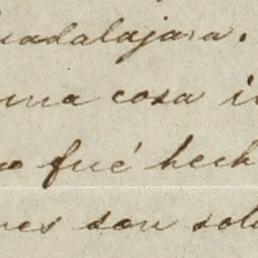 uadalajara.
una cosa i
o fué hech
nes son sol